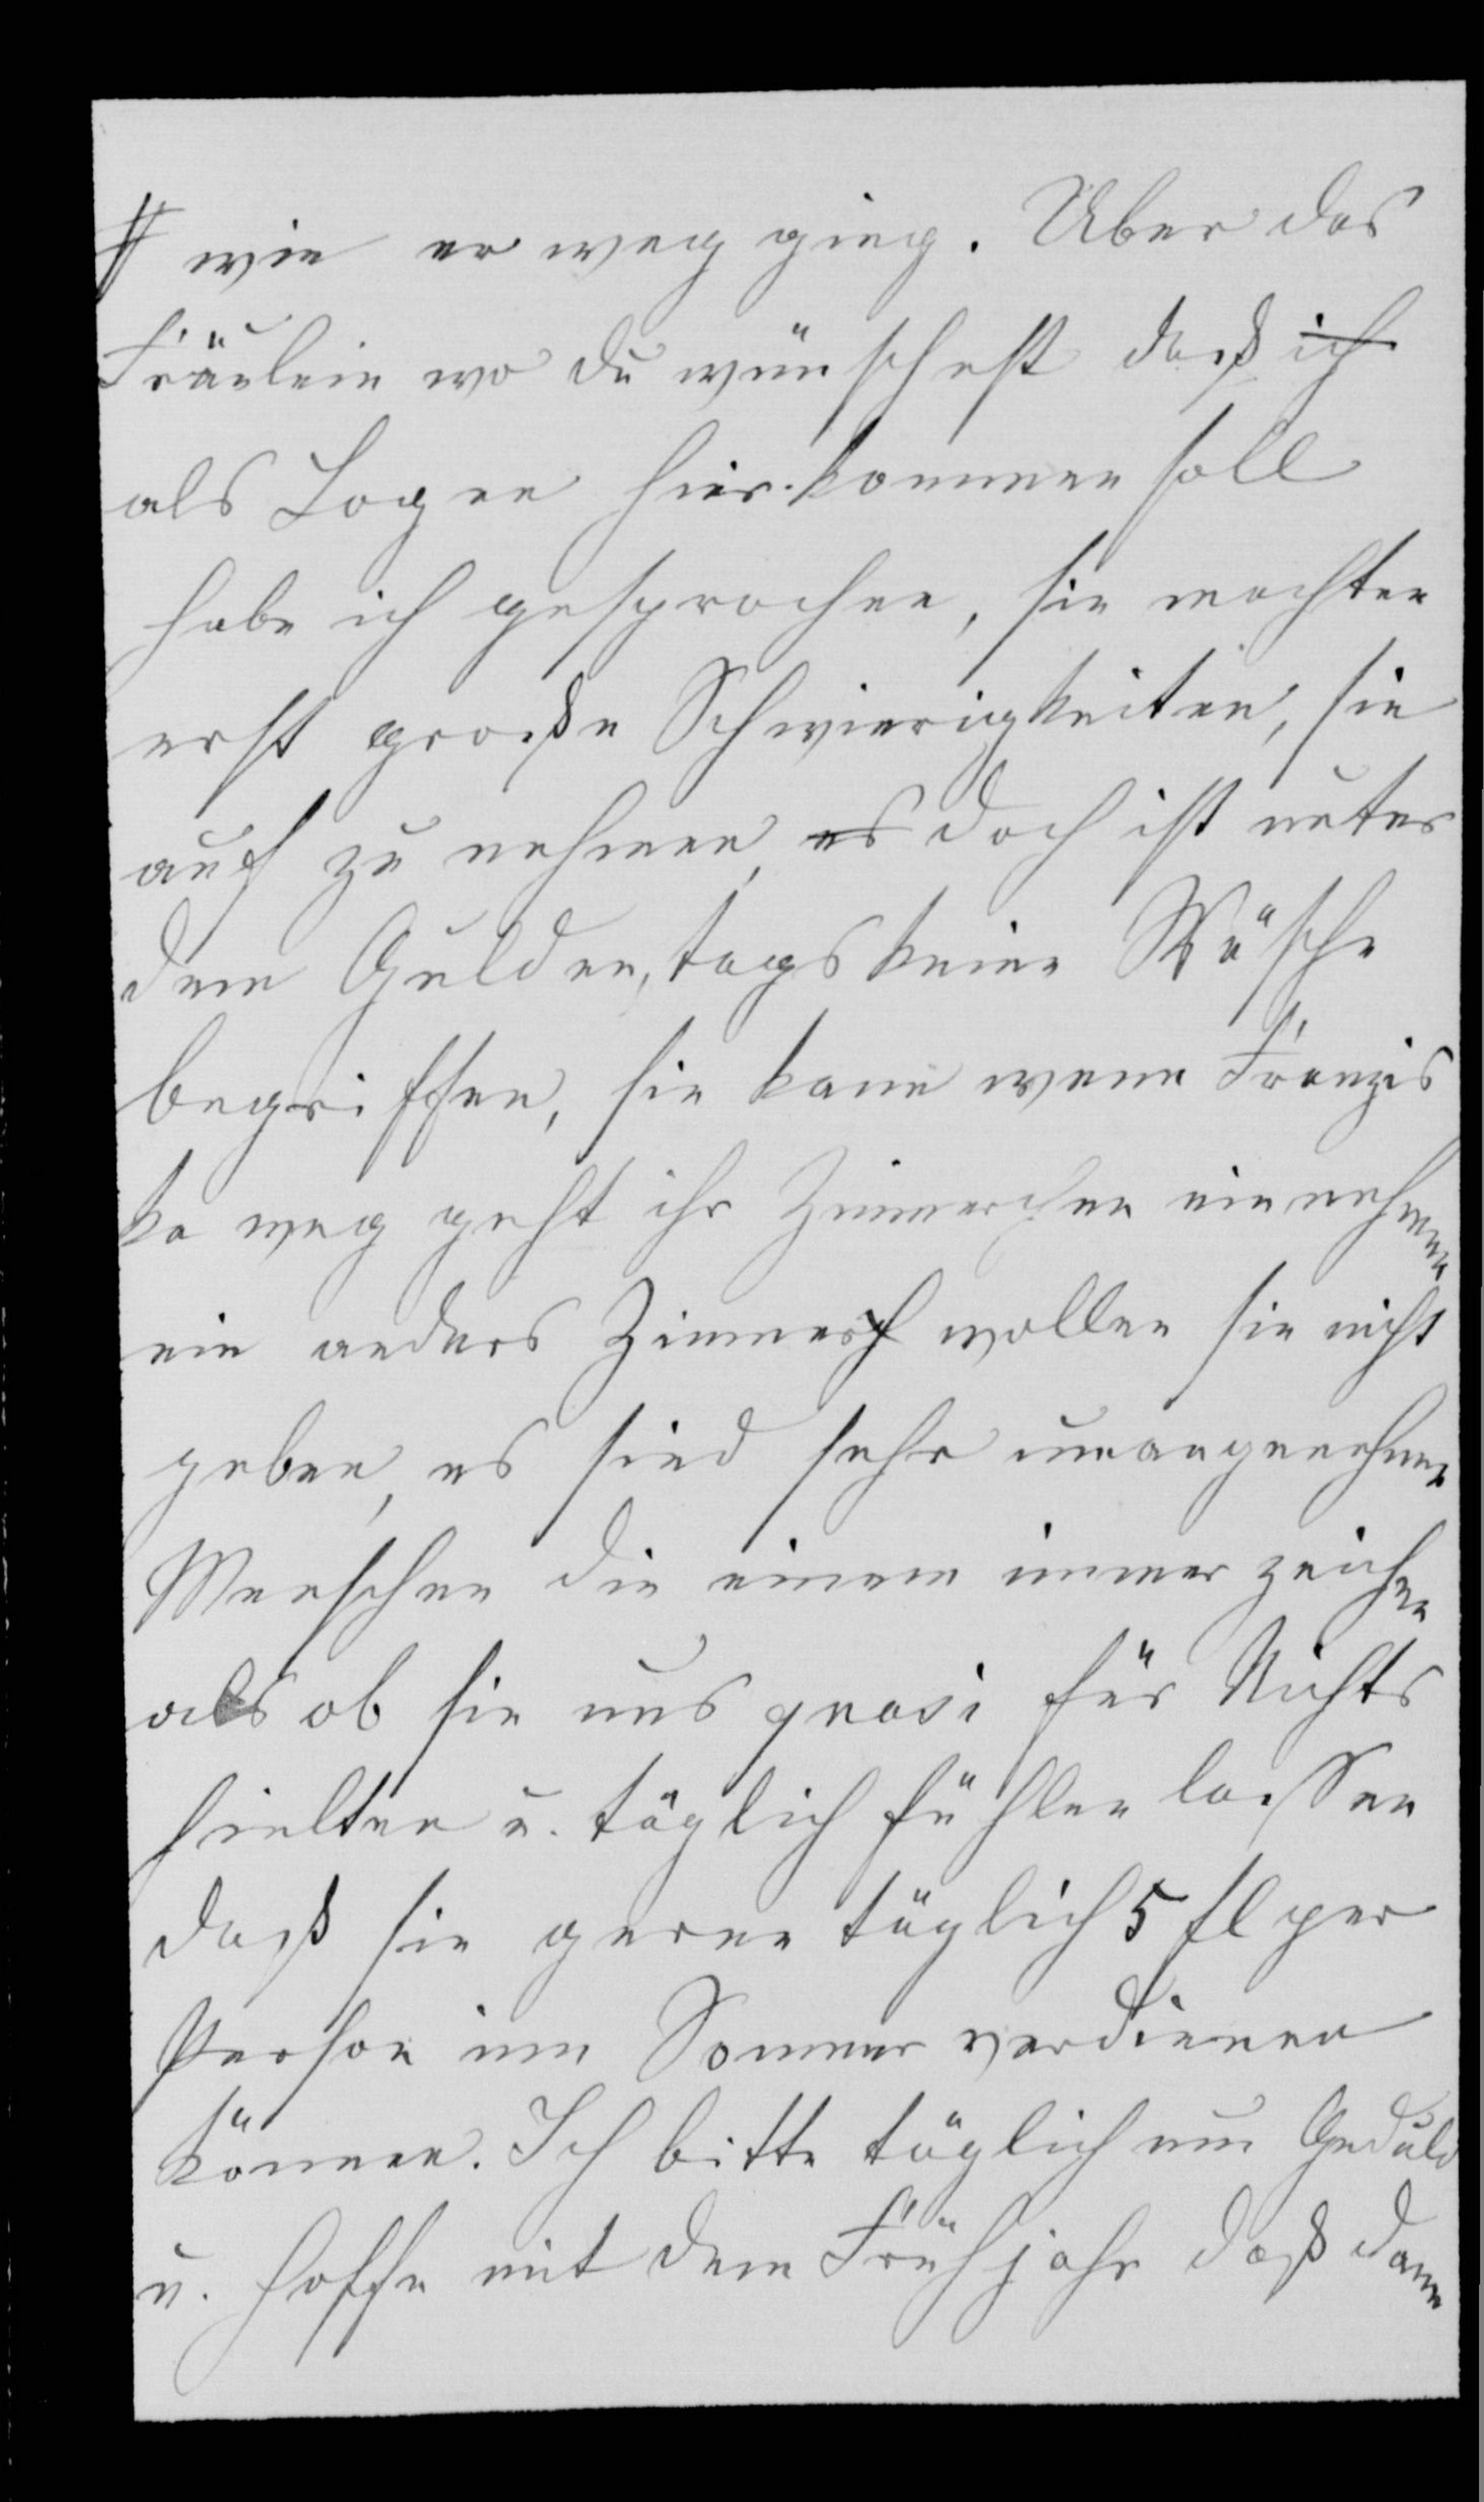 # wie er weg gieng. Über das
Fräulein wo du wünschest daß ich
als Logee hier kommen soll
habe ich gesprochen, sie machten
erst große Schwierigkeiten, sie
auf zu nehmen, es doch ist unter
dem Gulden, tags keine Wäsche
begriffen, sie kann wenn Franzis
ka weg geht ihr Zimmerchen einnehmen
ein anders Zimmer wollen sie nicht
geben, es sind sehr unangenehme
Menschen die einem immer zeichen
als ob sie uns quasi für Nichts
hielten u. täglich fühlen lassen
daß sie gerne täglich 5 fl per
Person im Sommer verdienen
können. Ich bitte täglich um Geduld
u. hoffe mit dem Frühjahr daß dann